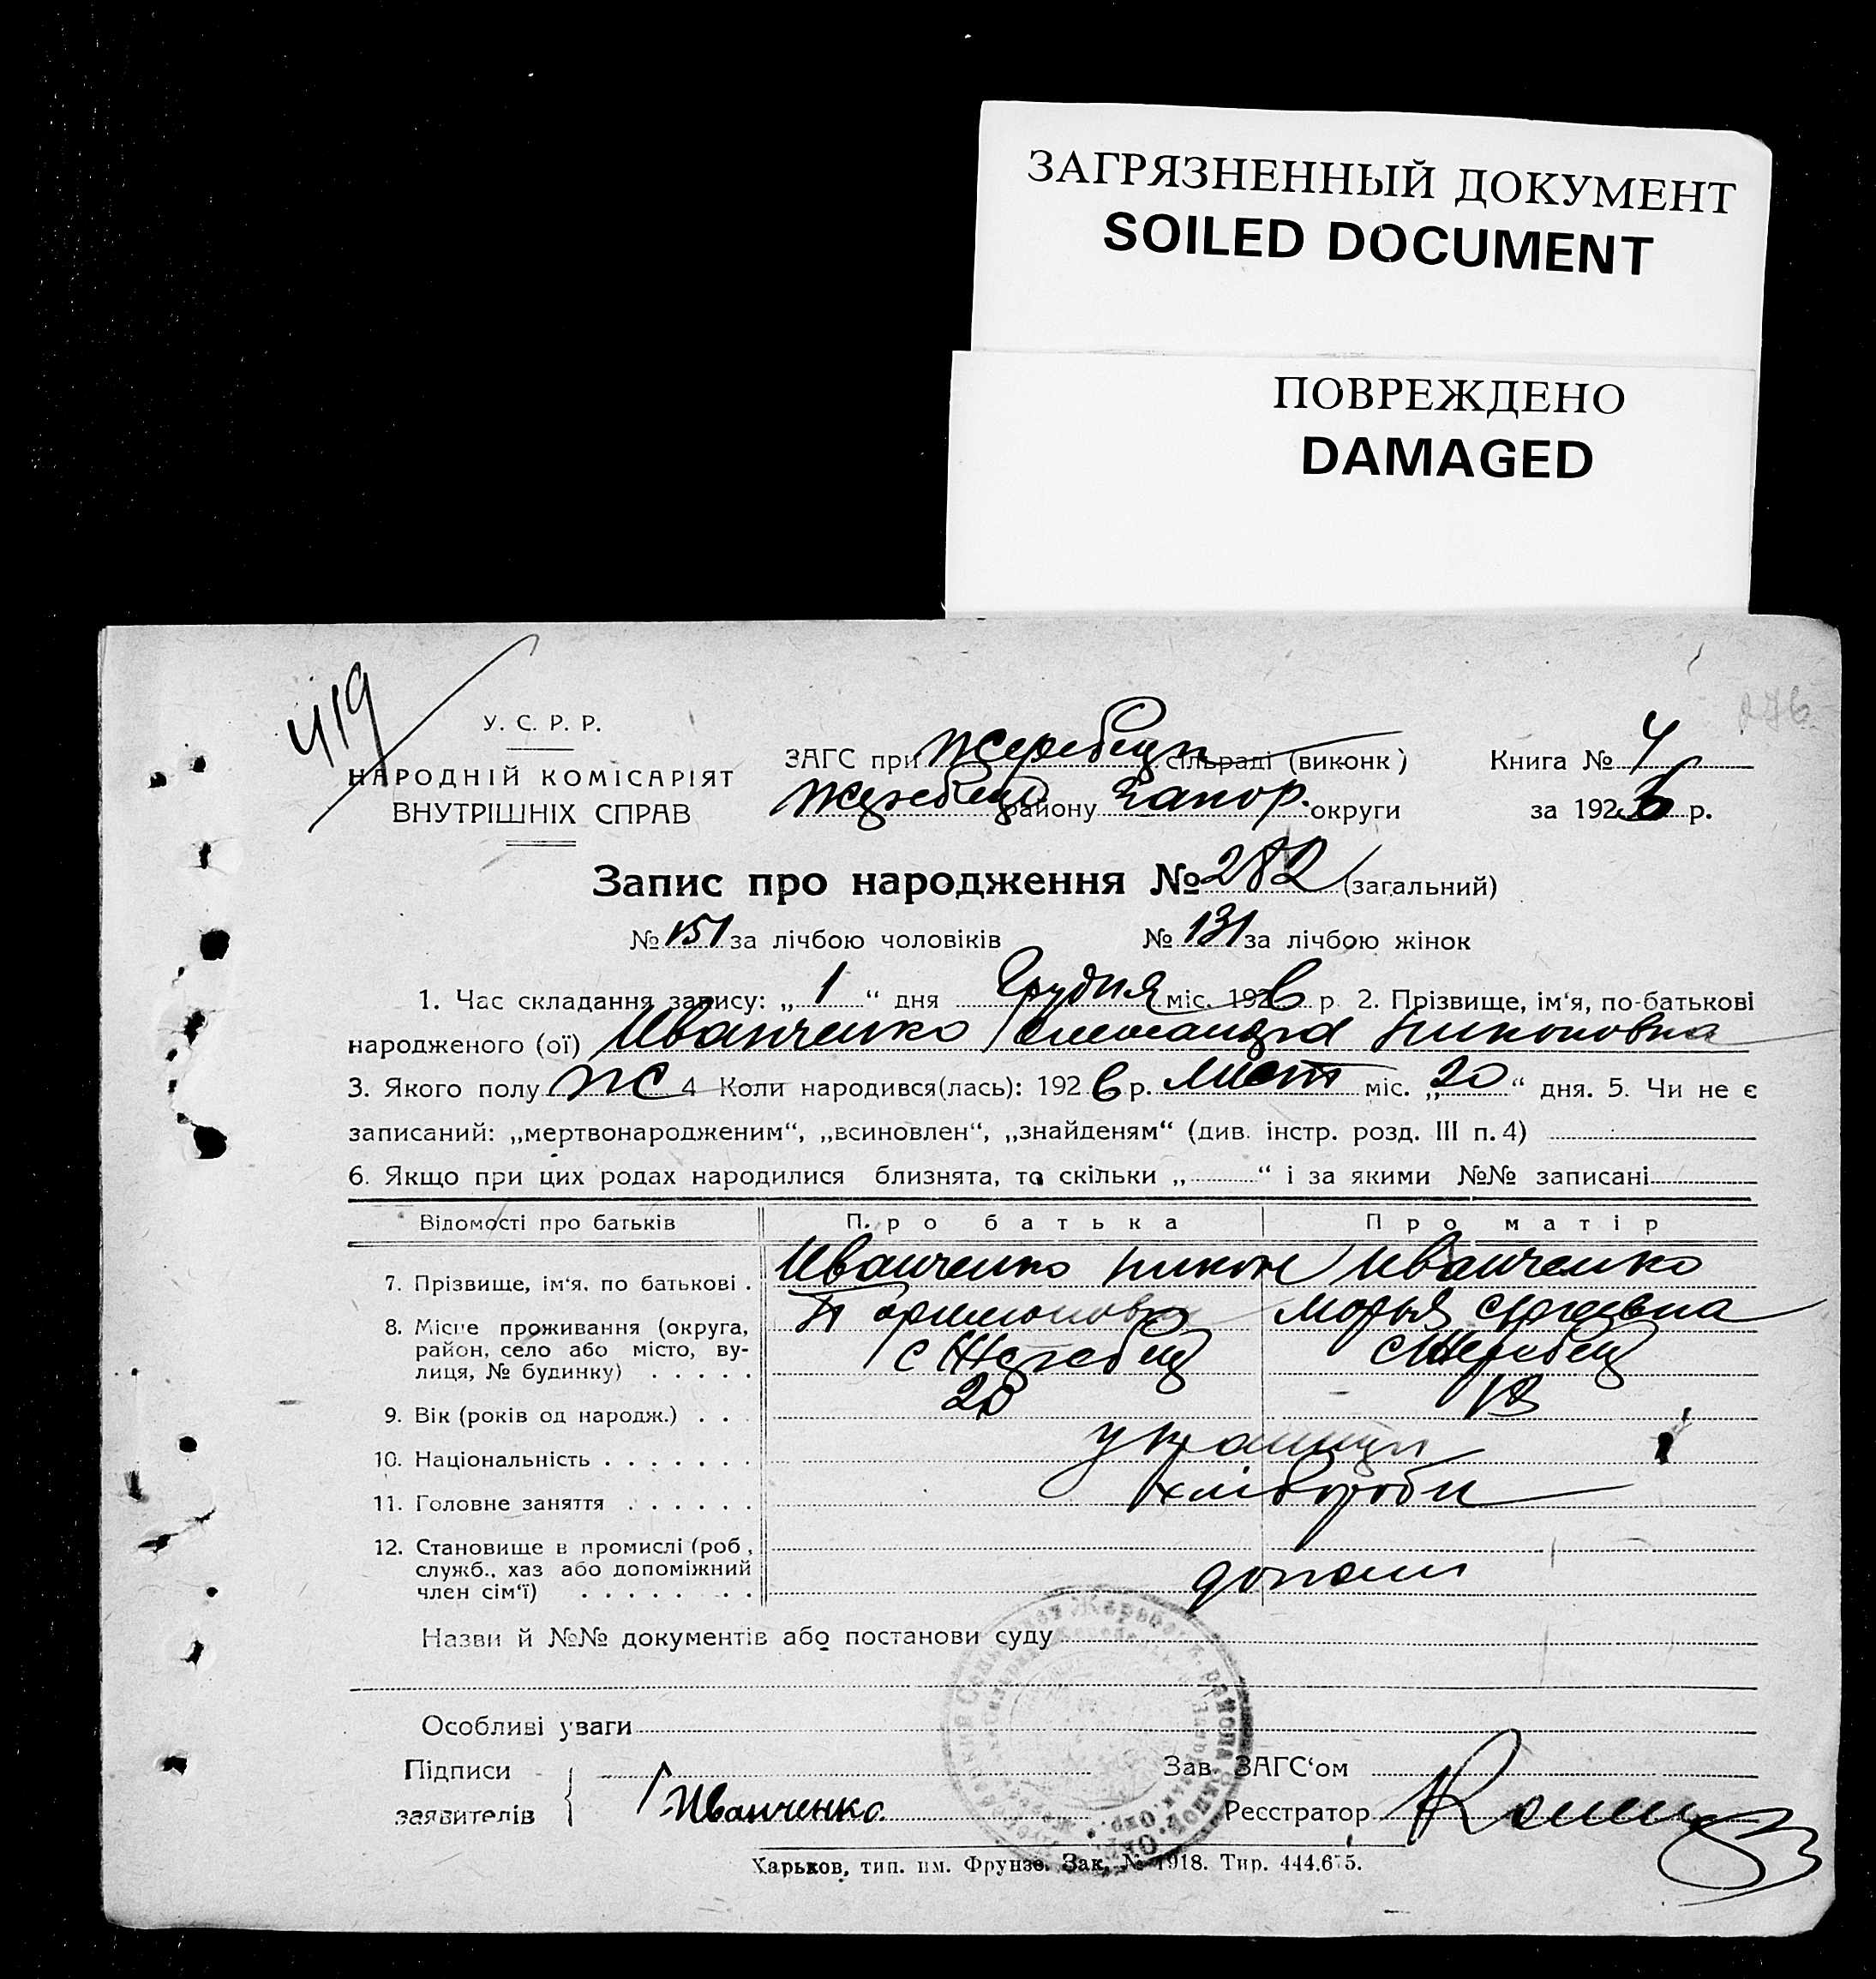 ЗАГРЯЗНЕННЫЙ ДОКУМЕНТ
SOILED DOCUMENT
ПОВРЕЖДЕНО
DAMAGED
419
276
У. С. Р. Р.
НАРОДНІЙ КОМІСАРІЯТ
ВНУТРІШНІХ СПРАВ
ЗАГС при Жеребецк сільраді (виконк)
Жеребецк району Запор. округи
Книга № 4
за 1926 р.
Запис про народження № 282 (загальний)
№ 151 за лічбою чоловіків № 131 за лічбою жінок
1. Час складання запису: „ 1 “ дня Грудня міс. 1926 р. 2. Прізвище, ім‘я, по-батькові
народженого (ої) Иванченко Александра Никоновна
3. Якого полу ж 4 Коли народився(лась): 1926 р. Лист міс. „20“ дня. 5. Чи не є
записаний: „мертвонародженим“, „всиновлен“, „знайденям“ (див. інстр. розд. III п. 4)
6. Якщо при цих родах народилися близнята, то скільки „ “ і за якими №№ записані
Відомості про батьків Про батька Про матір
7. Прізвище, ім‘я, по батькові . Иванченко Никон Иванченко
8. Місце проживання (округа, Марья
район, село або місто, ву- с Жеребец с Жеребец
лиця, № будинку) . . . . .
9. Вік (років од народж.) . . . 20 18
10. Національність . . . . . . . українци
11. Головне заняття . . . . . . хлібороби
12. Становище в промислі (роб,
служб., хаз або допоміжний
член сім‘ї) . . . . . . . .
Назви й №№ документів або постанови суду
Особливі уваги
Підписи
заявителів Иванченко
Зав. ЗАГС‘ом
Реєстратор
Харьков, тип. им. Фрунзе. Зак. № 1918. Тир. 444.675.